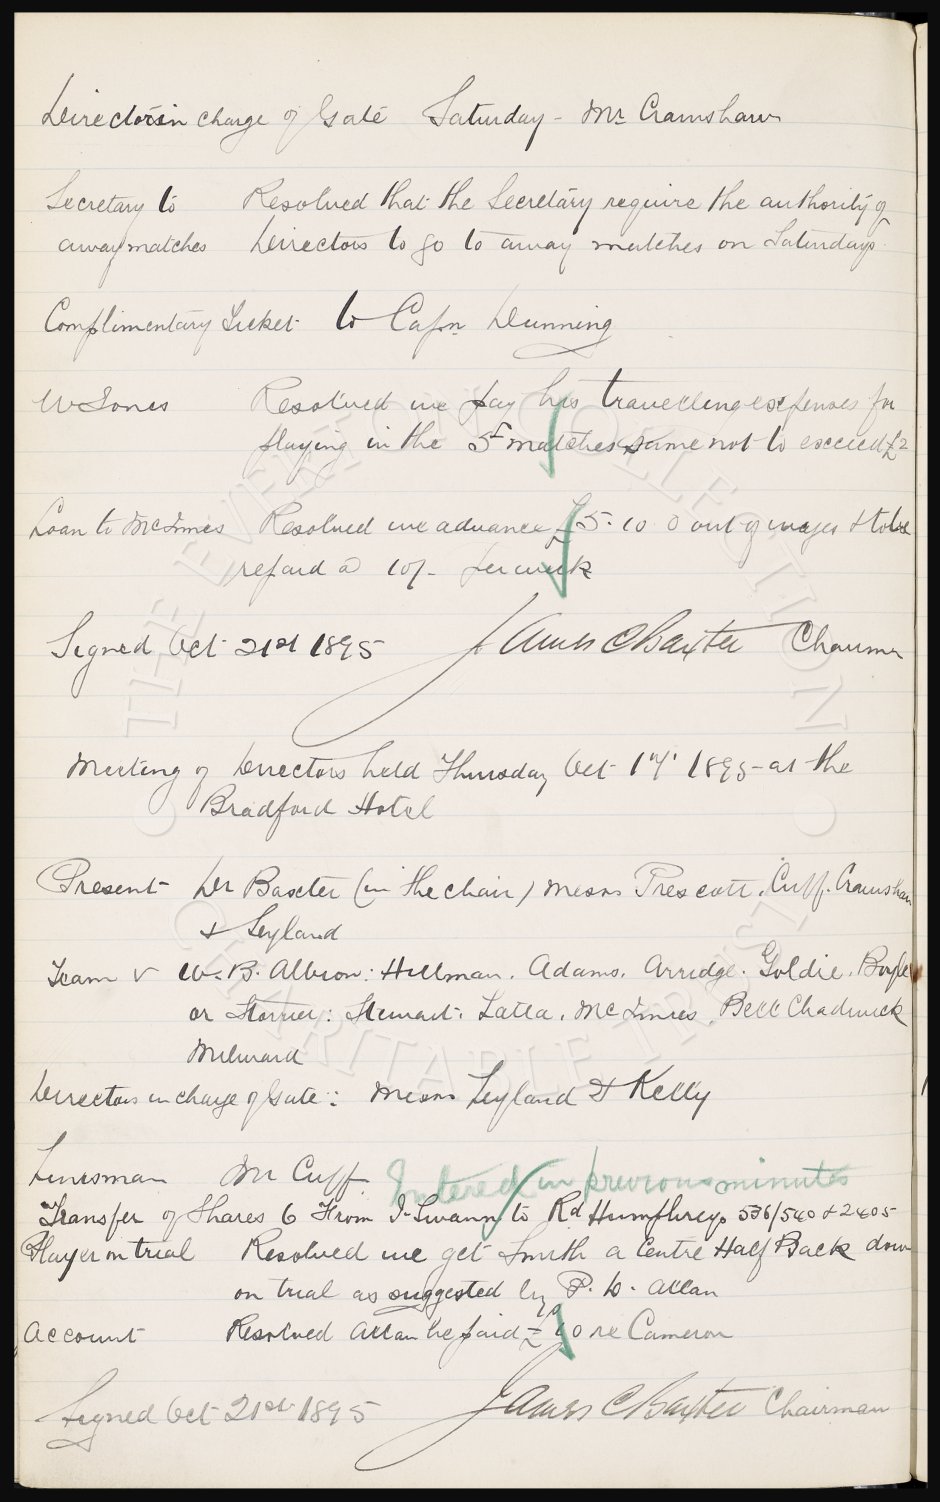 Directors in charge of Gate Saturday - Mr Cramshaw
Secretary to Resolved that the Secretary require the authority of
away matches Directors to go to away matches on Saturdays.
Complimentary Ticket to Capn Dunning
W Jones Resolved we pay his travelling expenses for
playing in the 5 matches same not to exceed £2
Loan to McInnes Resolved we advance £5.10.0 out of wages & to be
repaid @ 10/- per week
Signed Oct 21st 1895 James C Baxter Chairman
Meeting of Directors held Thursday Oct 17th 1895 at the
Bradford Hotel
Present Dr Baxter (in the chair) Messrs Prescott. Cuff. Cramshaw
& Leyland
Team v W. B. Albion: Hillman. Adams. Arridge. Goldie. Boyle
or Storrier: Stewart: Latta. McInnes. Bell Chadwick
Milward
Directors in charge of Gate: Messrs Leyland & Kelly
Linesman Mr Cuff Entered in previous minutes
Transfer of Shares 6 From I. Swann to Rd Humphreys 536/540 & 2405
Player on trial Resolved we get Smith a Centre Half Back down
on trial as suggested by P. D. Allan
Account Resolved Allan be paid £10 re Cameron
Signed Oct 21st 1895 James C Baxter Chairman
THE EVERTON COLLECTION
CHARITABLE TRUST